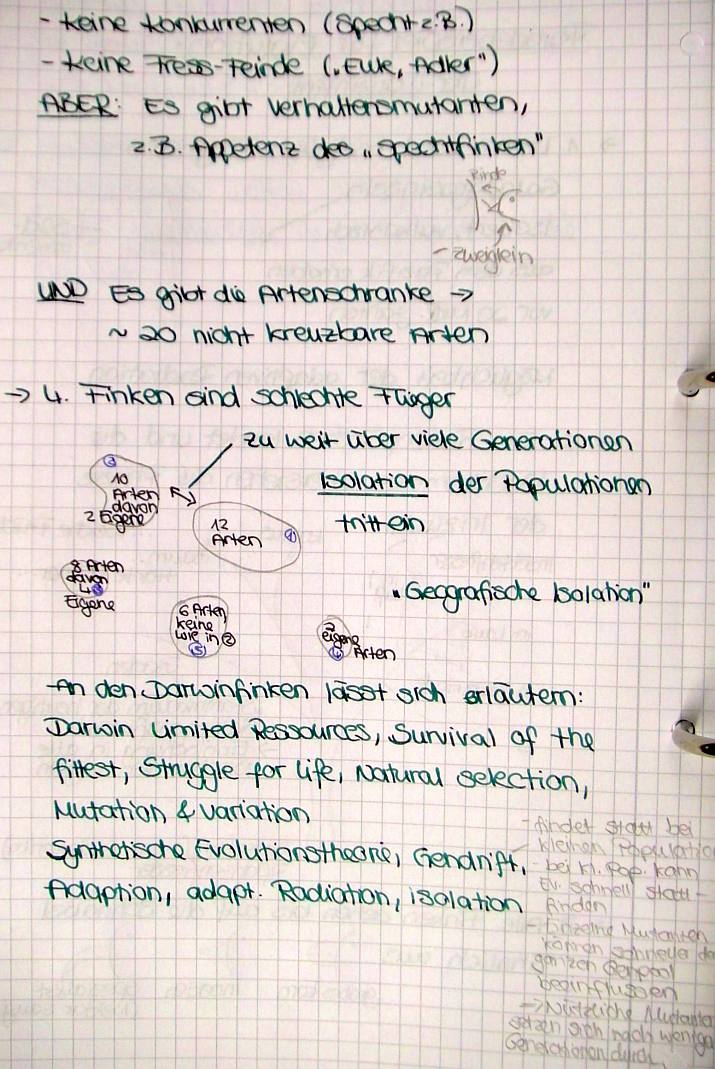 - keine Konkurrenten (Specht z.B.)
- keine Fress-Feinde („Eule, Adler")
ABER: Es gibt Verhaltensmutanten,
z.B. Appetenz des „Spechtfinken"
Rinde
- Zweiglein
UND Es gibt die Artenschranke →
~ 20 nicht kreuzbare Arten
→ 4. Finken sind schlechte Flieger
zu weit über viele Generationen
Isolation der Populationen
tritt ein
10
Arten
davon
2 Eigene
12
Arten ①
8 Arten
davon
4
Eigene
„Geografische Isolation"
6 Arten
keine
wie in ②
⑤
eigene
Arten
An den Darwinfinken lässt sich erläutern:
Darwin Limited Ressources, Survival of the
fittest, Struggle for life, Natural selection,
Mutation & Variation
Synthetische Evolutionstheorie, Gendrift,
Adaption, adapt. Radiation, isolation
- findet statt bei
kleinen Populatio
- bei kl. Pop. kann
Ev. schnell statt-
finden
- Einzelne Mutanten
können schneller
ganzen Genpool
beeinflussen
→ Nützliche
setzen sich nach
Generationen durch